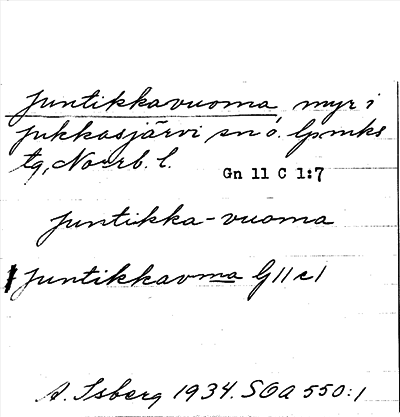 Juntikkavuoma myr i
Jukkasjärvi sn ö. lpmks
tg, Norrb. l.
Gn 11 C 1:7
Juntikka-vuoma
Juntikkavma G 11 c 1
A. Isberg 1934. SOA 550:1